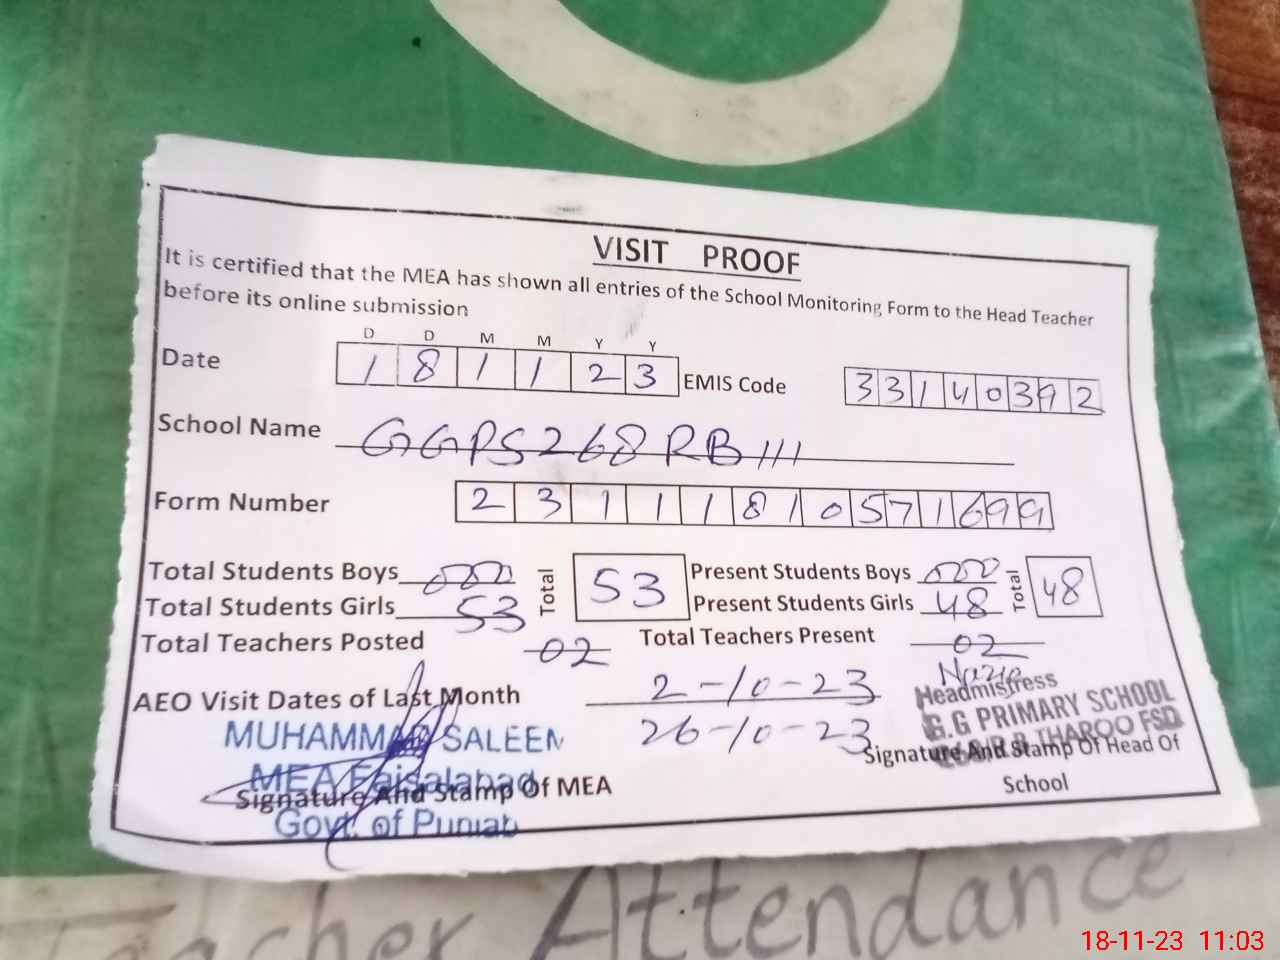 VISIT PROOF
It is certified that the MEA has shown all entries of the School Monitoring Form to the Head Teacher
before its online submission
D D M M Y Y
Date 1 8 1 1 2 3 EMIS Code 3 3 1 4 0 3 9 2
School Name GGPS 268 RB III
Form Number 2 3 1 1 1 8 1 0 5 7 1 6 9 9
Total Students Boys 000 Total 53 Present Students Boys 000 Total 48
Total Students Girls 53 Present Students Girls 48
Total Teachers Posted 02 Total Teachers Present 02
AEO Visit Dates of Last Month 2-10-23
26-10-23
Headmistress
G.G PRIMARY SCHOOL
THAROO FSD
Signature And Stamp Of Head Of
School
MUHAMMAD SALEEM
MEA Faisalabad
Signature And Stamp Of MEA
Govt. of Punjab
Teacher Attendance
18-11-23 11:03